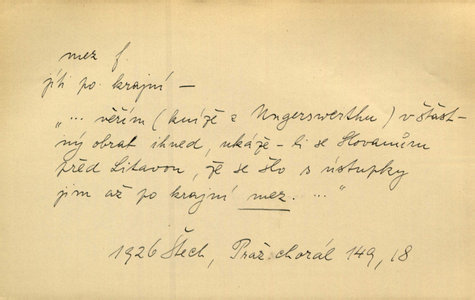 mez f.
jíti po krajní –
"... věřím (kníže z Ungerswerthu) v šťast-
ný obrat ihned, ukáže-li se Slovanům
před Litavou, že se šlo s ústupky
jim až po krajní mez. ..."
1926 Štech, Praž. chorál 149, 18